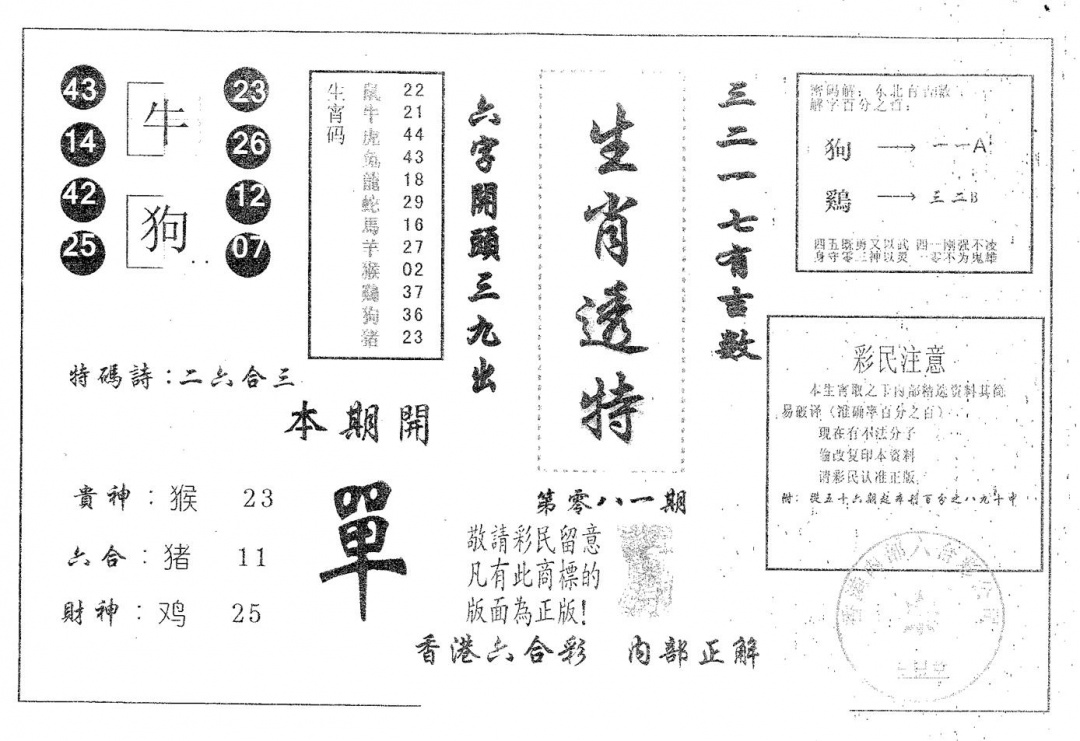 43 牛 23
14 26
42 狗 12
25 07
生宵码
鼠 22
牛 21
虎 44
兔 43
龍 18
蛇 29
馬 16
羊 27
猴 02
鷄 37
狗 36
猪 23
六字開頭三九出
生肖透特
三二一七有吉数
密码解：东北有吉数
解字百分之百：
狗 → 一一A
鷄 → 三二B
四五既勇又以武 四一刚强不凌
身守零三神以灵 一零不为鬼雄
特碼詩：二六合三
本期開
單
貴神：猴 23
六合：猪 11
財神：鸡 25
第零八一期
敬請彩民留意
凡有此商標的
版面為正版！
彩民注意
本生宵取之于内部精选资料其简
易破译（准确率百分之百）
现在有不法分子
偷改复印本资料
请彩民认准正版
附：從五十六期起 百分之八九十中
香港六合彩 内部正解